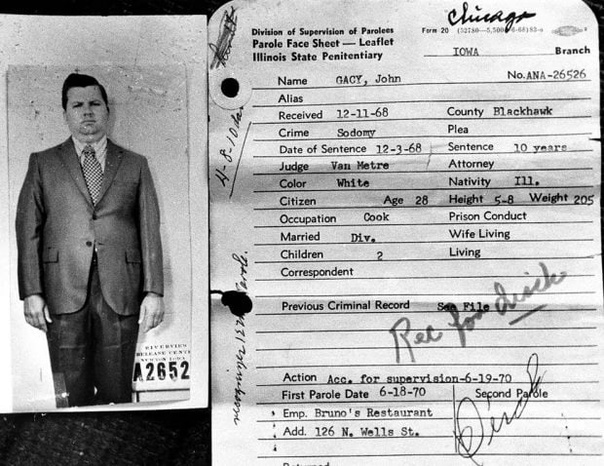 Chicago
Division of Supervision of Parolees
Form 20
Parole Face Sheet — Leaflet
Illinois State Penitentiary
IOWA Branch
Name GACY, John No. ANA-26526
Alias
Received 12-11-68 County Blackhawk
Crime Sodomy Plea
Date of Sentence 12-3-68 Sentence 10 years
Judge Van Metre Attorney
Color White Nativity Ill.
Citizen Age 28 Height 5-8 Weight 205
Occupation Cook Prison Conduct
Married Div. Wife Living
Children 2 Living
Correspondent
Previous Criminal Record See File
Rec for
Action Acc. for supervision-6-19-70
First Parole Date 6-18-70 Second Parole
Emp. Bruno's Restaurant
Add. 126 N. Wells St.
Returned
4-8-10
Parole.
RIVERVIEW
RELEASE CENT
NEWTON IOWA
A2652